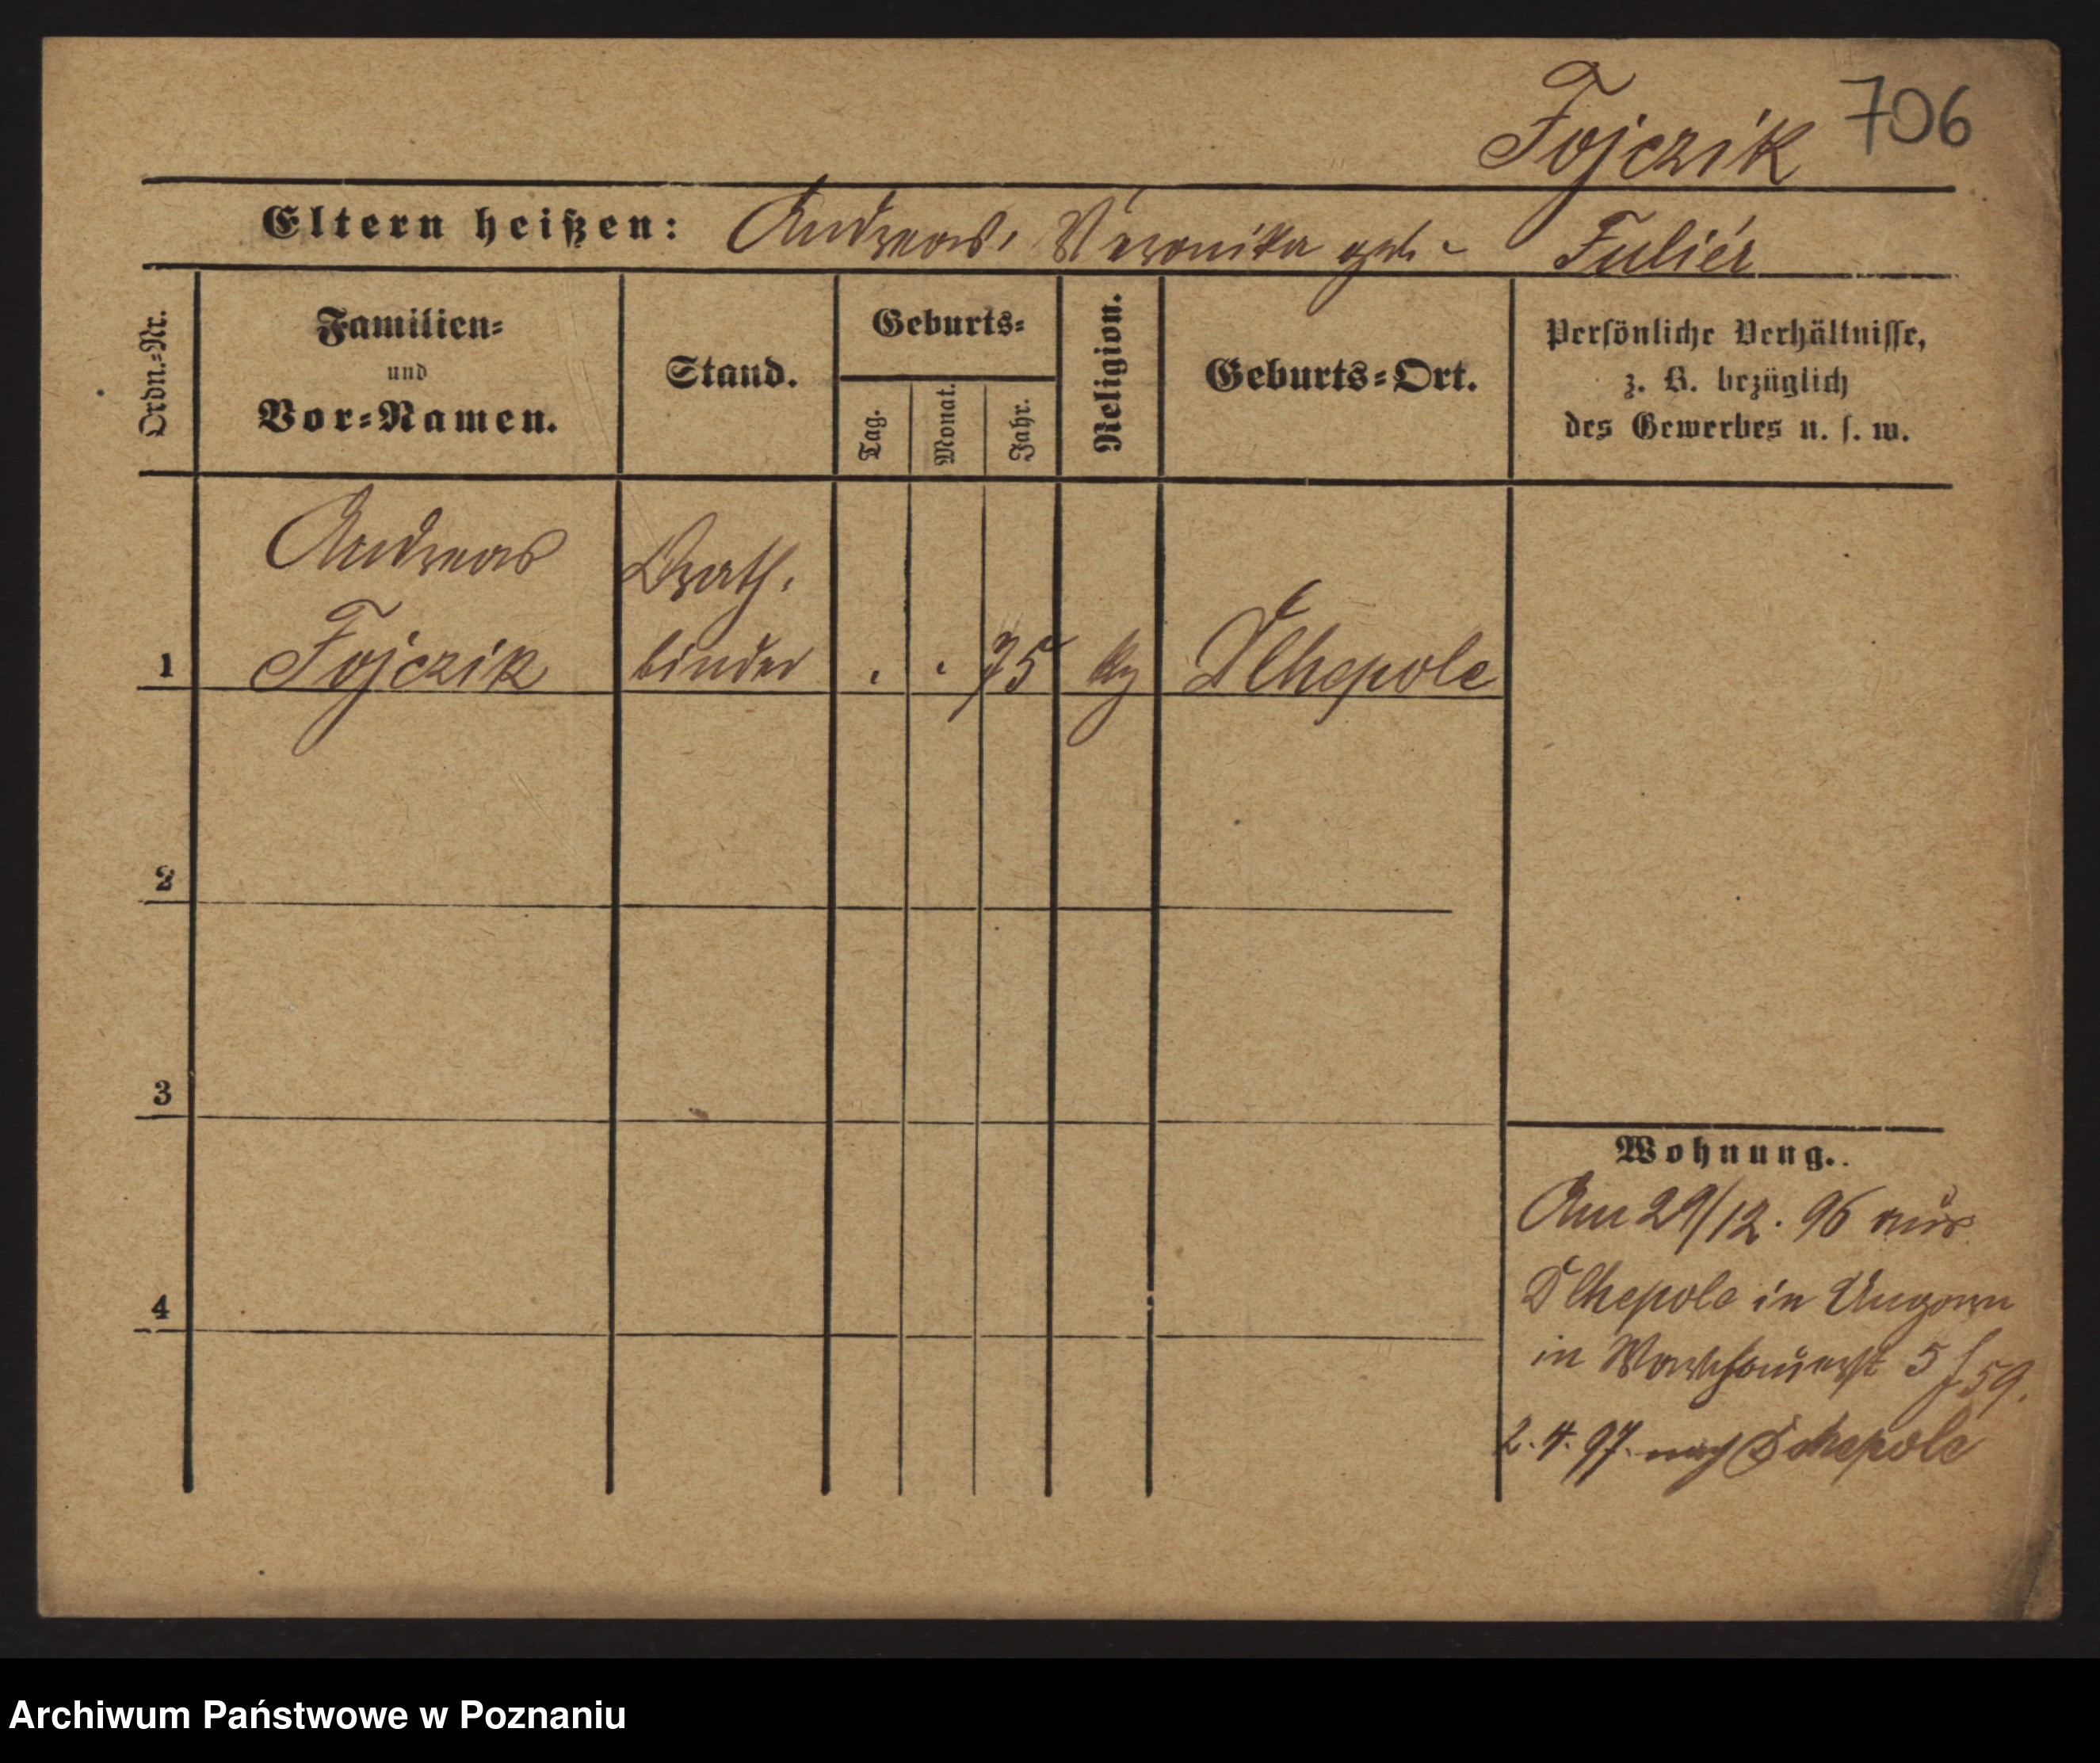 Fojczik 706
Eltern heißen: Andreas, Veronika geb. Fuliér
Ordn.-Nr.
Familien-
und
Vor-Namen.
Stand.
Geburts-
Tag.
Monat.
Jahr.
Religion.
Geburts-Ort.
Persönliche Verhältnisse,
z. B. bezüglich
des Gewerbes u. s. w.
Andreas
Drath-
1 Fojczik binder . . 75 Dlhepole
2
3
4
Wohnung.
Am 29/12. 96 aus
Dlhepole in Ungarn
in 5
2.4.97. nach Dlhepole
Archiwum Państwowe w Poznaniu